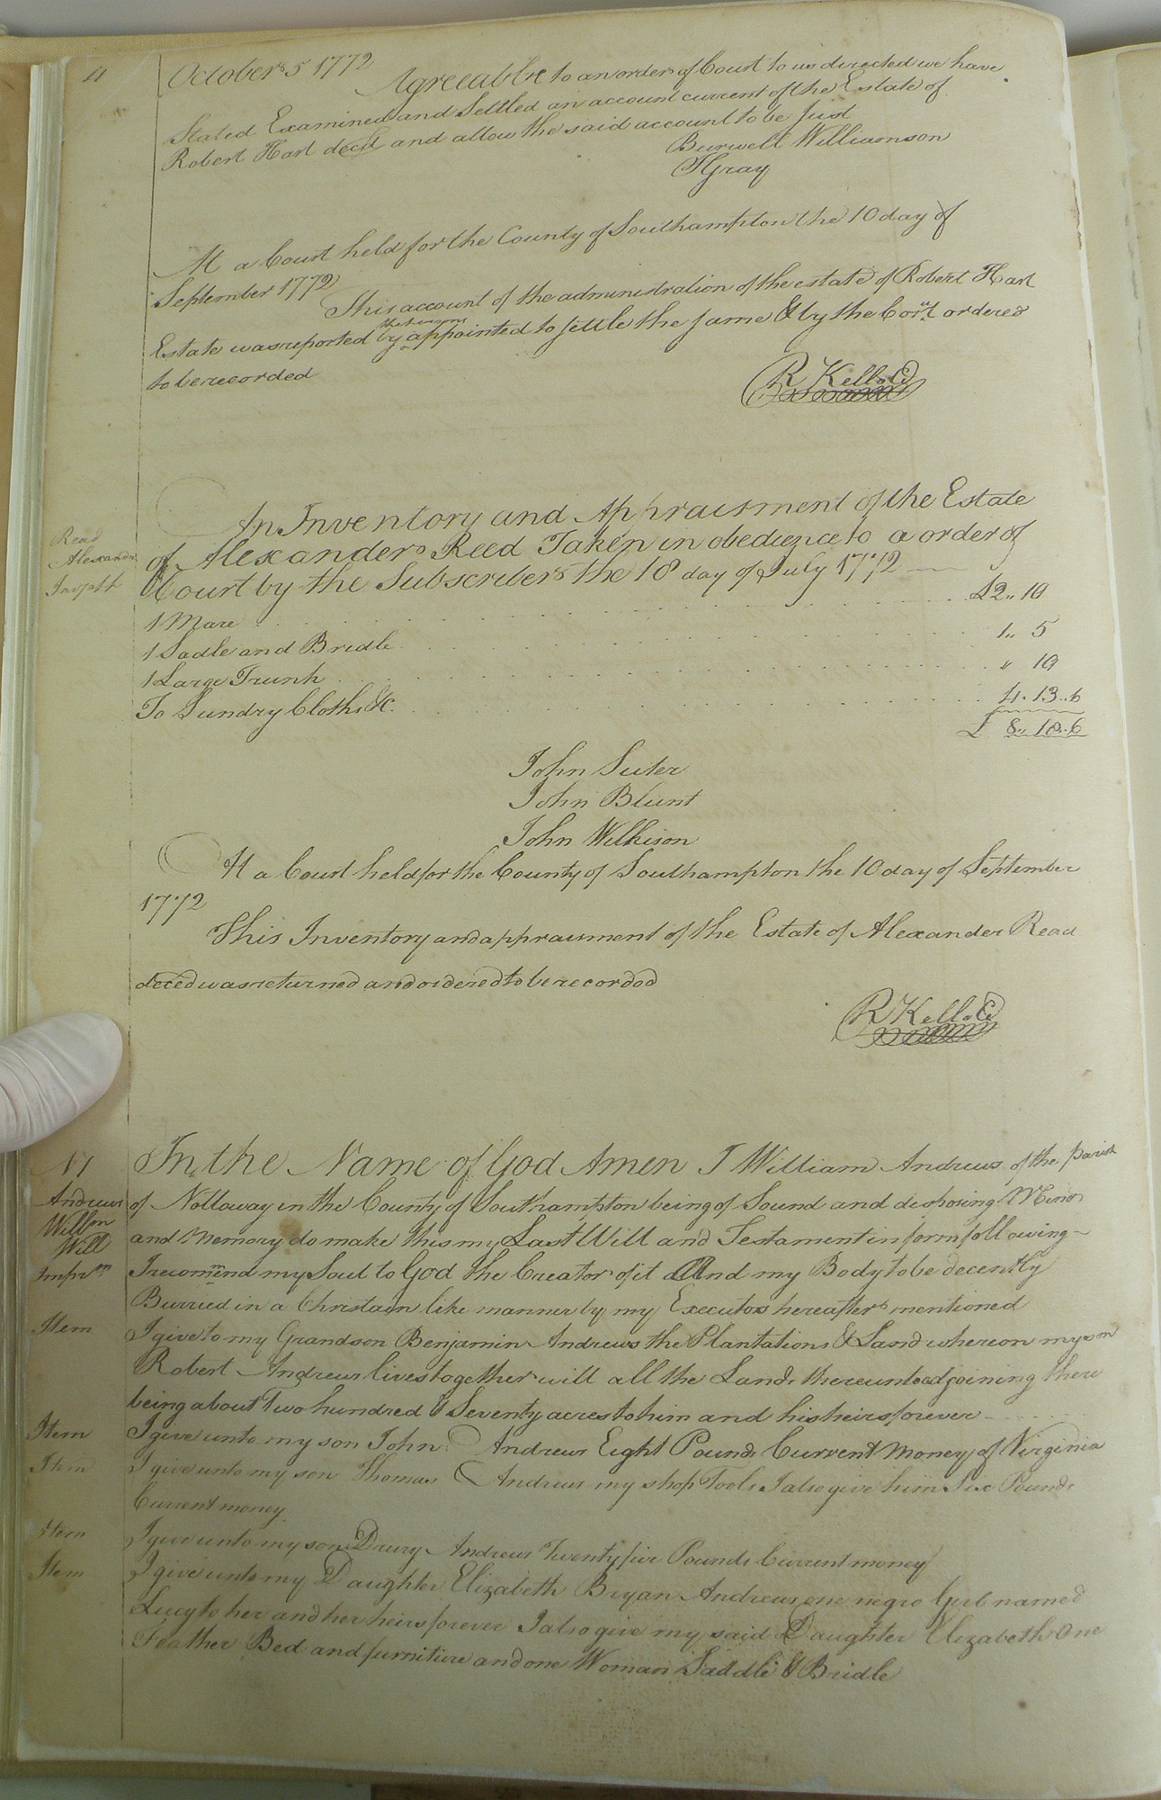 11
October 5 1772 Agreeable to an order of Court to us directed we have
Stated Examined and Settled an account current of the Estate of
Robert Hart decd and allow the said account to be Just
Burwell Williamson
Gray
At a Court held for the County of Southampton the 10 day of
September 1772
This account of the administration of the estate of Robert Hart
Estate was reported by the persons appointed to settle the same & by the Court ordered
to be recorded
R Kello Cl
Read
Alexander
An Inventory and Appraisment of the Estate
of Alexander Reed Taken in obedience to a order of
Court by the Subscribers the 18 day of July 1772
1 Mare £2,, 10
1 Sadle and Bridle 1,, 5
1 Large Trunk ,, 10
To Sundry Cloths &c. 4. 13.. 6
£ 8,, 18..6
John Suter
John Blunt
John Wilkison
At a Court held for the County of Southampton the 10 day of September
1772
This Inventory and appraisment of the Estate of Alexander Read
deced was returned and ordered to be recorded
R Kello Cl
Andrews
Willm
Will
In the Name of God Amen I William Andrews of the parish
of Nottoway in the County of Southampton being of Sound and disposing Mind
and Memory do make this my Last Will and Testament in form following
Impr I recommend my Soul to God the Creator of it And my Body to be decently
Burried in a Christain like manner by my Executors hereafter mentioned
Item I give to my Grandson Benjamin Andrews the Plantation & Land whereon my son
Robert Andrews lives together will all the Lands thereunto adjoining there
being about Two hundred & Seventy acres to him and his heirs forever
Item I give unto my son John Andrews Eight Pounds Current Money of Virginia
Item I give unto my son Thomas Andrews my shop Tools I also give him Six Pounds
Current money
Item I give unto my son Drury Andrews Twenty five Pounds Current money
Item I give unto my Daughter Elizabeth Bryan Andrews one negro Girl named
Lucy to her and her heirs forever I also give my said Daughter Elizabeth One
Feather Bed and furniture and one Woman Saddle & Bridle